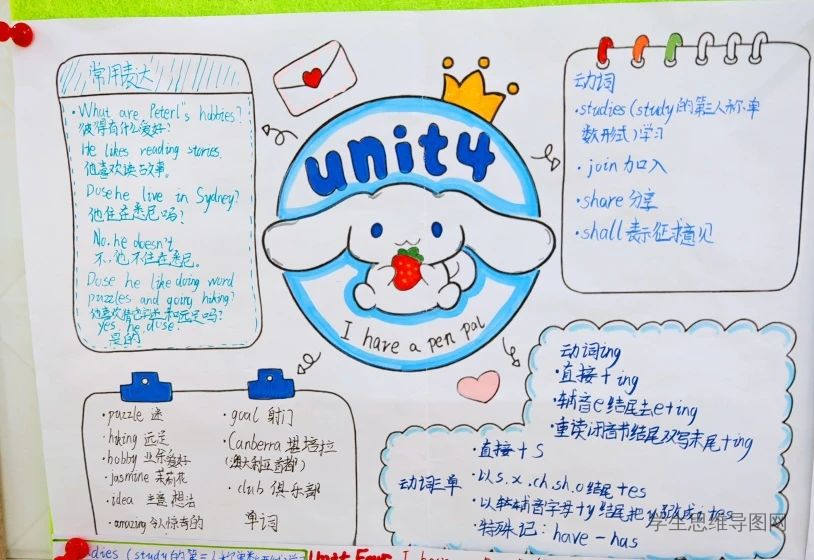 常用表达
·What are Peterl"s hobbies?
彼得有什么爱好?
He likes reading stories.
他喜欢读故事.
Dose he live in Sydney?
他住在悉尼吗?
No, he doesn't
不,他不住在悉尼。
Dose he like doing word
puzzles and going hiking?
和远足吗?
yes, he duse.
是的
unit4
I have a pen pal
动词
·studies (study的第三人称单
数形式)学习
·join 加入
·share 分享
·shall 表示征求意见
·puzzle 迷
hiking 远足
·hobby 业余爱好
·jasmine 茉莉花
·idea 主意 想法
·amazing 令人惊奇的
·goal 射门
·Canberra 堪培拉
(澳大利亚首都)
·club 俱乐部
单词
动词ing
·直接+ing
·辅音e结尾去e+ing
·重读闭音节结尾双写末尾+ing
动词三单
·直接+s
·以s.x.ch.sh.o结尾+es
·以辅音字母+y结尾把y改成i+es
·特殊记:have-has
学生思维导图网
dies (study的第三人称单数形式)学习
Unit Four I have a